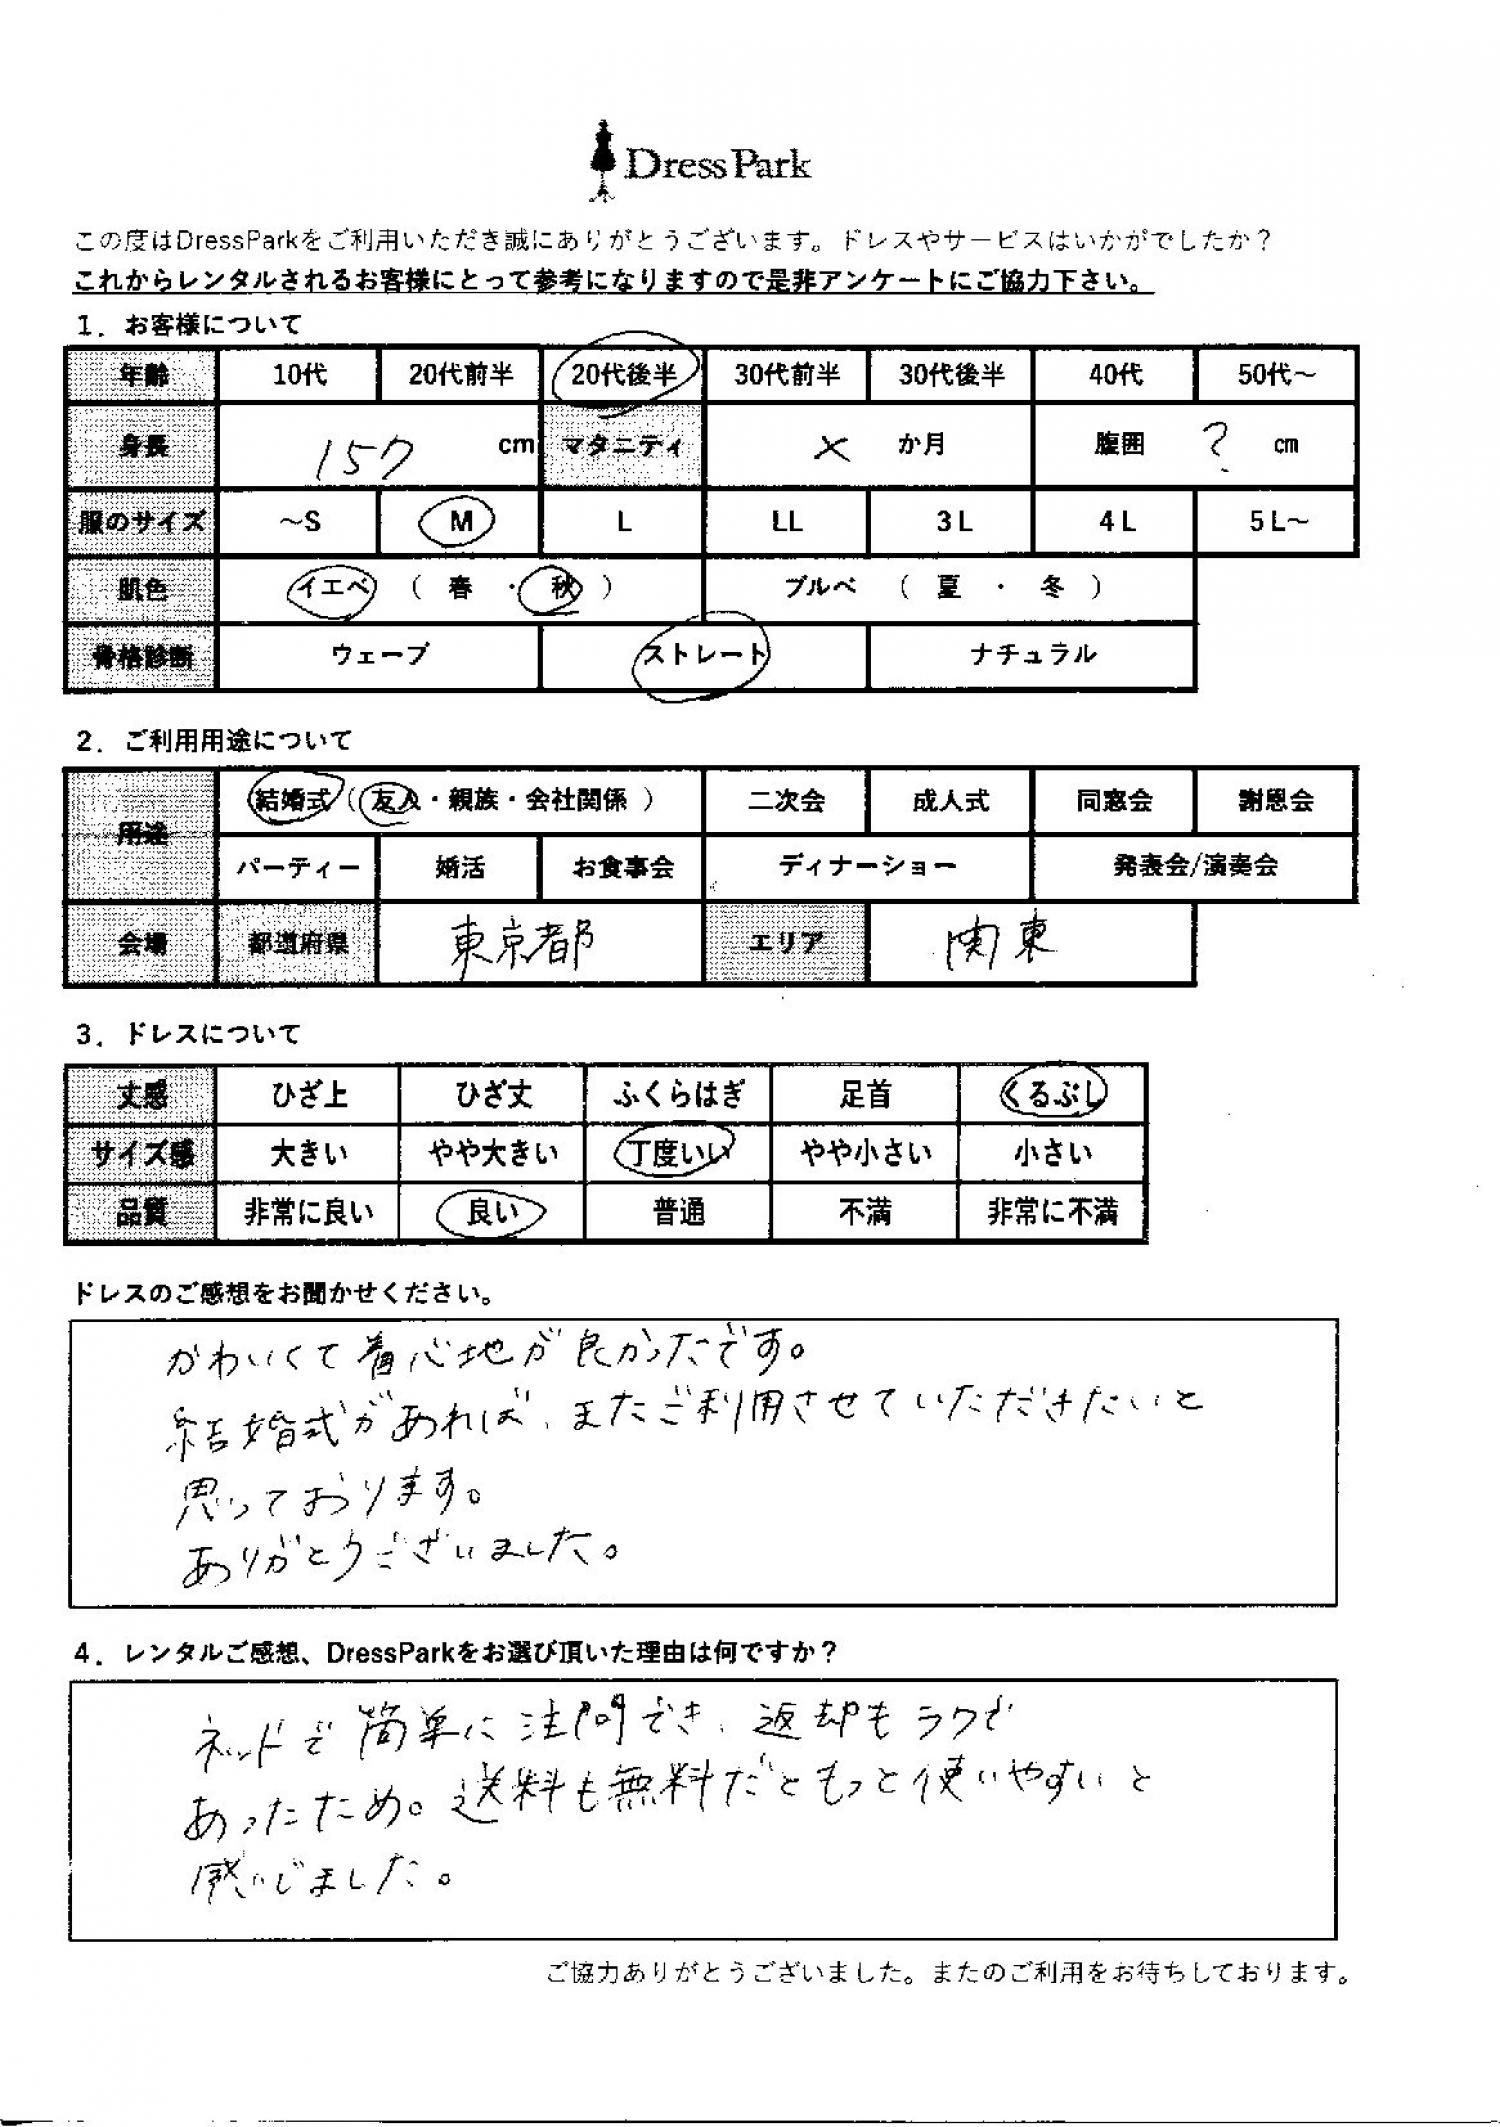 Dress Park
この度はDressParkをご利用いただき誠にありがとうございます。ドレスやサービスはいかがでしたか？
これからレンタルされるお客様にとって参考になりますので是非アンケートにご協力下さい。
1．お客様について
年齢 10代 20代前半 20代後半 30代前半 30代後半 40代 50代～
身長 157 cm マタニティ × か月 腹囲 ? cm
服のサイズ ～S M L LL 3L 4L 5L～
肌色 イエベ（ 春 ・ 秋 ） ブルベ （ 夏 ・ 冬 ）
骨格診断 ウェーブ ストレート ナチュラル
2．ご利用用途について
用途 結婚式（友人・親族・会社関係 ） 二次会 成人式 同窓会 謝恩会
パーティー 婚活 お食事会 ディナーショー 発表会/演奏会
会場 都道府県 東京都 エリア 関東
3．ドレスについて
丈感 ひざ上 ひざ丈 ふくらはぎ 足首 くるぶし
サイズ感 大きい やや大きい 丁度いい やや小さい 小さい
品質 非常に良い 良い 普通 不満 非常に不満
ドレスのご感想をお聞かせください。
かわいくて着心地が良かったです。
結婚式があれば、またご利用させていただきたいと
思っております。
ありがとうございました。
4．レンタルご感想、DressParkをお選び頂いた理由は何ですか？
ネットで簡単に注文でき、返却もラクで
あったため。送料も無料だともっと使いやすいと
感じました。
ご協力ありがとうございました。またのご利用をお待ちしております。